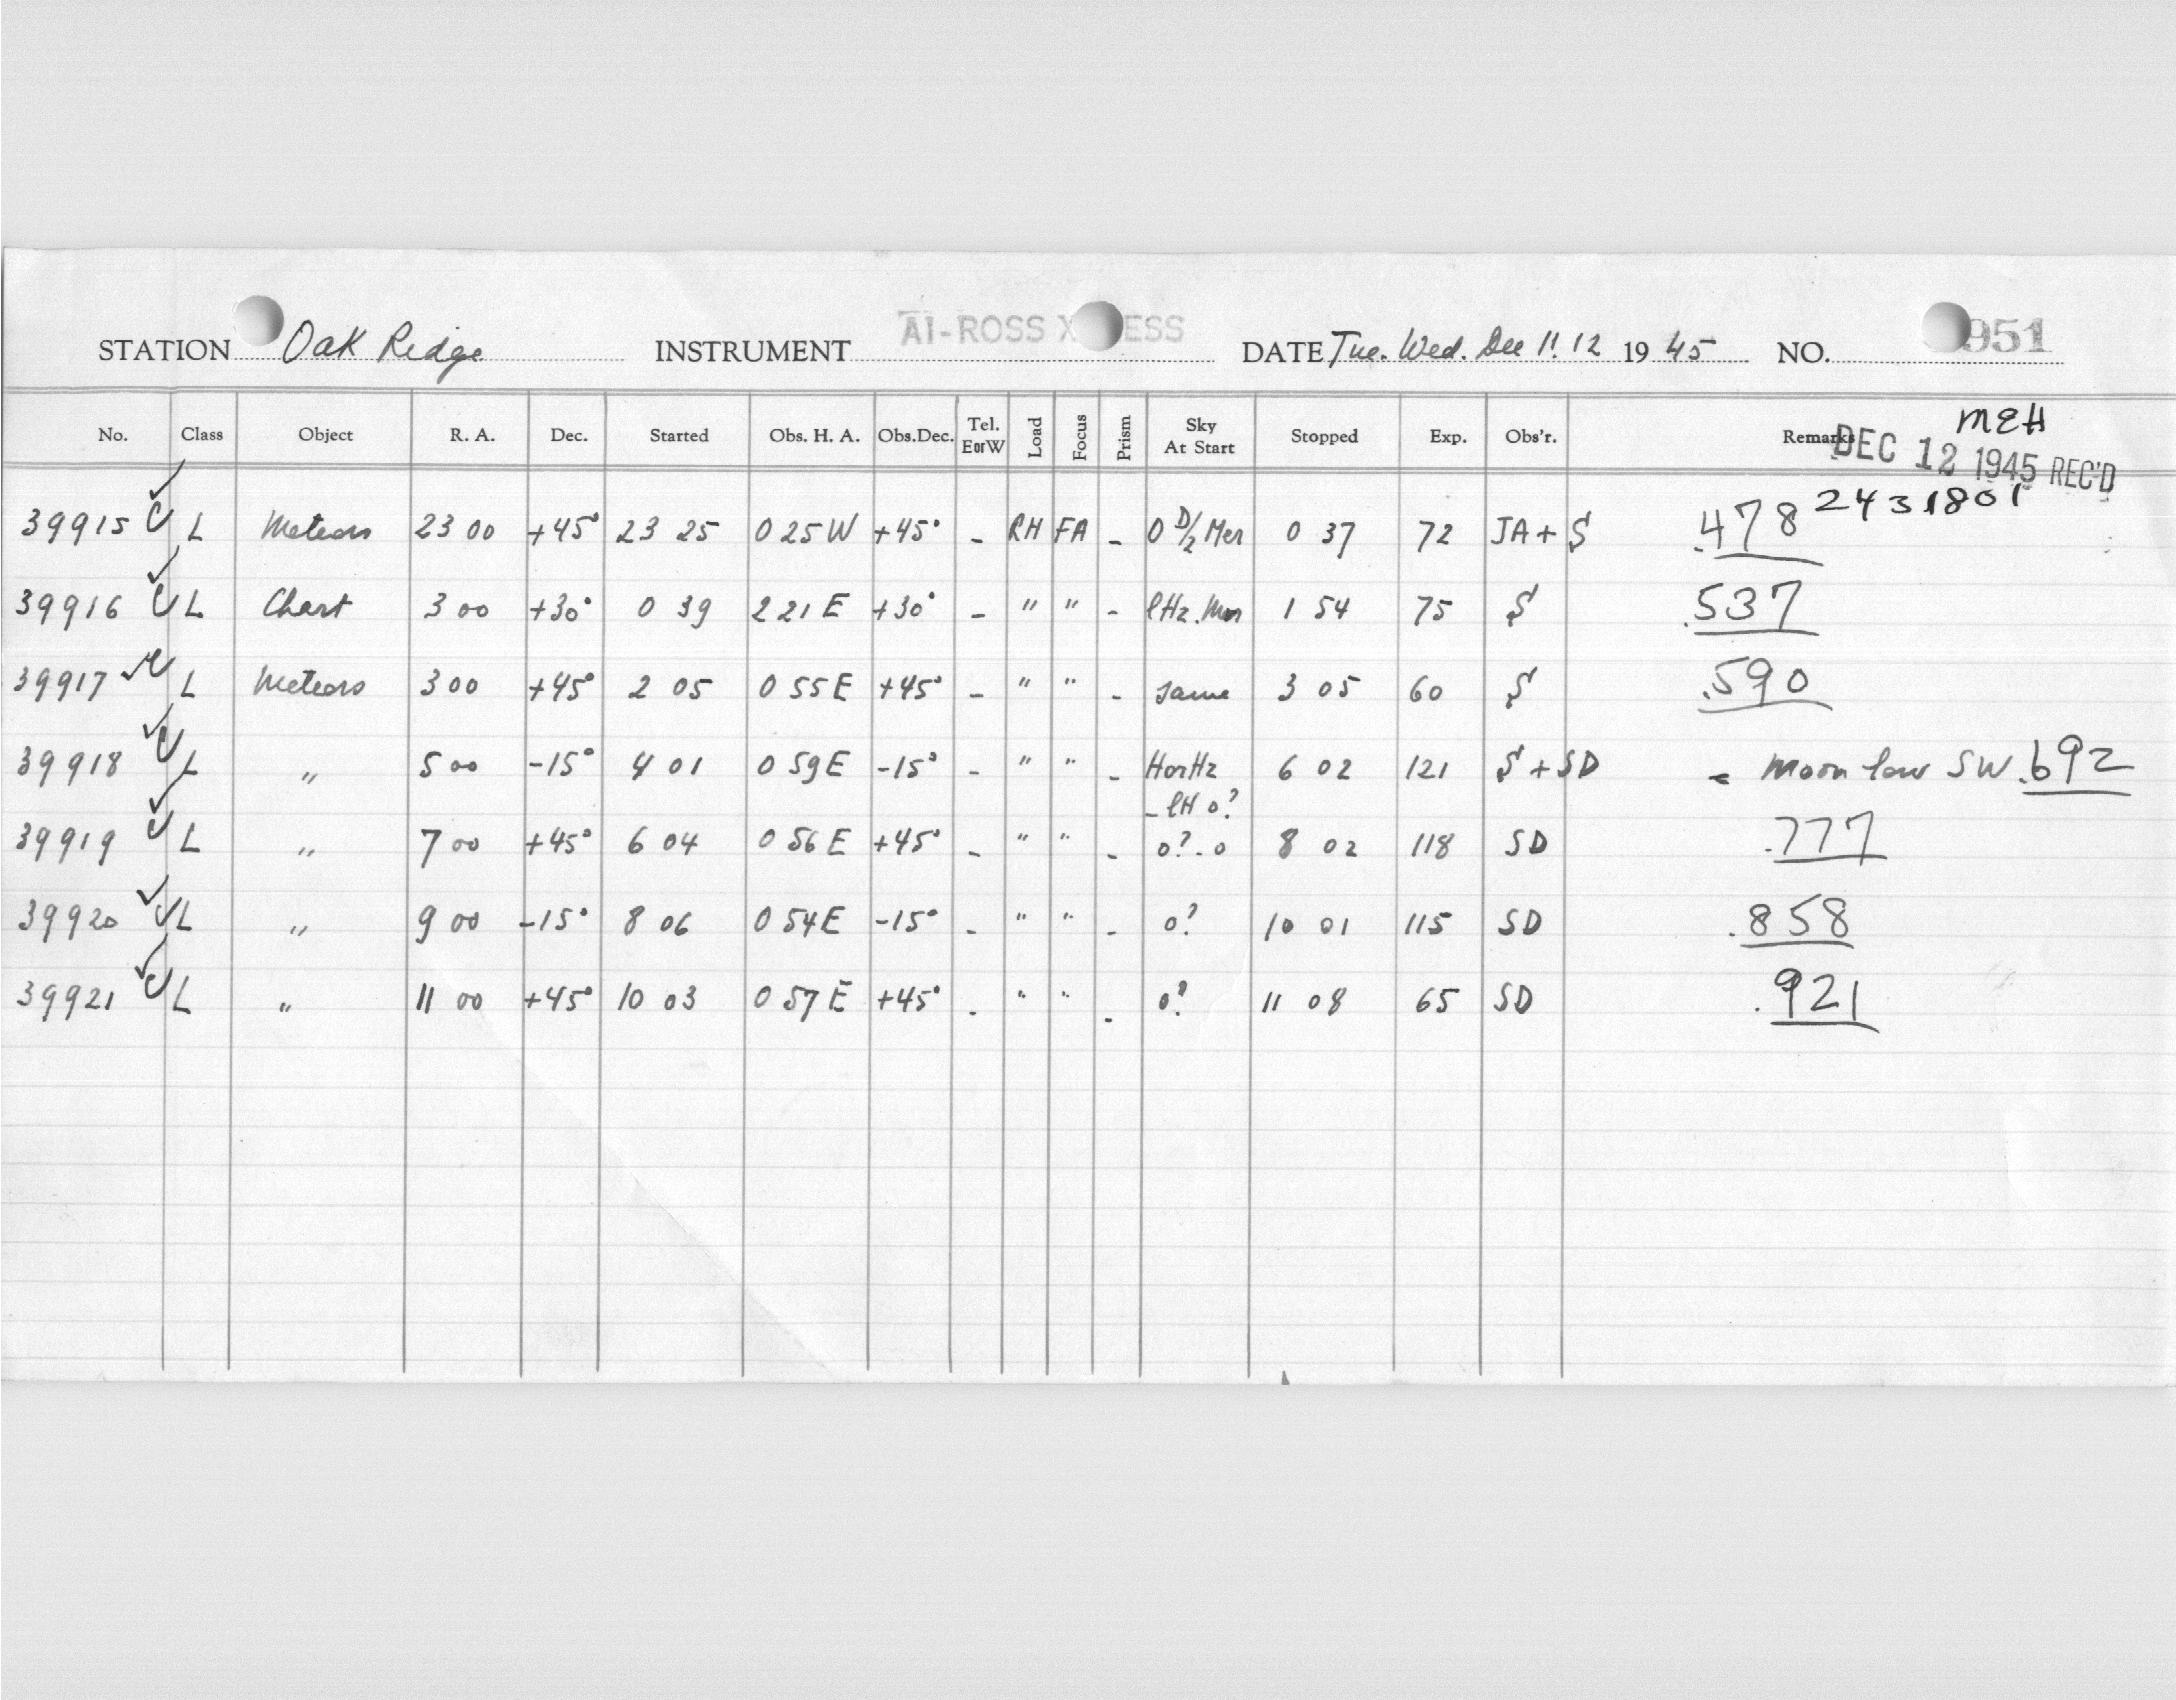 STATION Oak Ridge INSTRUMENT AI-ROSS X ESS DATE Tue. Wed. Dec 11. 12 1945 NO. 951
No. Class Object R. A. Dec. Started Obs. H. A. Obs.Dec. Tel. E or W Load Focus Prism Sky At Start Stopped Exp. Obs'r. Remarks MEH
DEC 12 1945 REC'D
39915 L Meteors 23 00 +45° 23 25 0 25 W +45° - RH FA - 0 D/2 Mer 0 37 72 JA + $ .478 2431801
39916 L Chart 3 00 +30° 0 39 2 21 E +30° - " " - lHz. 1 54 75 $ .537
39917 L Meteors 3 00 +45° 2 05 0 55 E +45° - " " - same 3 05 60 $ .590
39918 L " 5 00 -15° 4 01 0 59 E -15° - " " - HorHz 6 02 121 $ + SD - Moon low SW .692
- lH 0?
39919 L " 7 00 +45° 6 04 0 56 E +45° - " " - 0? - 0 8 02 118 SD .777
39920 L " 9 00 -15° 8 06 0 54 E -15° - " " - 0? 10 01 115 SD .858
39921 L " 11 00 +45° 10 03 0 57 E +45° - " " - 0? 11 08 65 SD .921